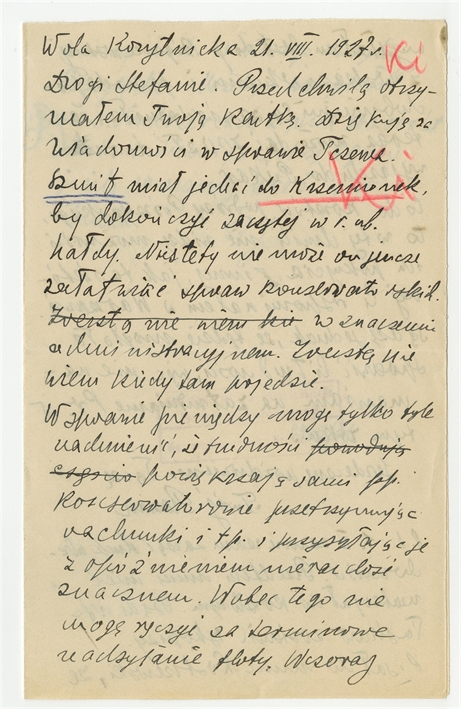 Wola Korytnicka 21. VIII. 1927 r. Ki
Drogi Stefanie. Przed chwilą otrzy-
małem Twoją kartkę. Dziękuję za
wiadomości w sprawie Tczewa.
Szmit miał jechać do Krzemieniek, Ki
by dokończyć zaczętej w r. ub.
hałdy. Niestety nie może on jeszcze
załatwiać spraw konserwatorskich.
Zresztą nie wiem kie w znaczeniu
administracyjnem. Zresztą nie
wiem kiedy tam pojedzie.
W sprawie pieniędzy mogę tylko tyle
nadmienić, iż trudności powodują
częścio powiększają sami pp.
Konserwatorowie przetrzymując
rachunki i t p. i przysyłając je
z opóźnieniem nieraz dość
znacznem. Wobec tego nie
mogę ręczyć za terminowe
nadsyłanie floty. Wczoraj